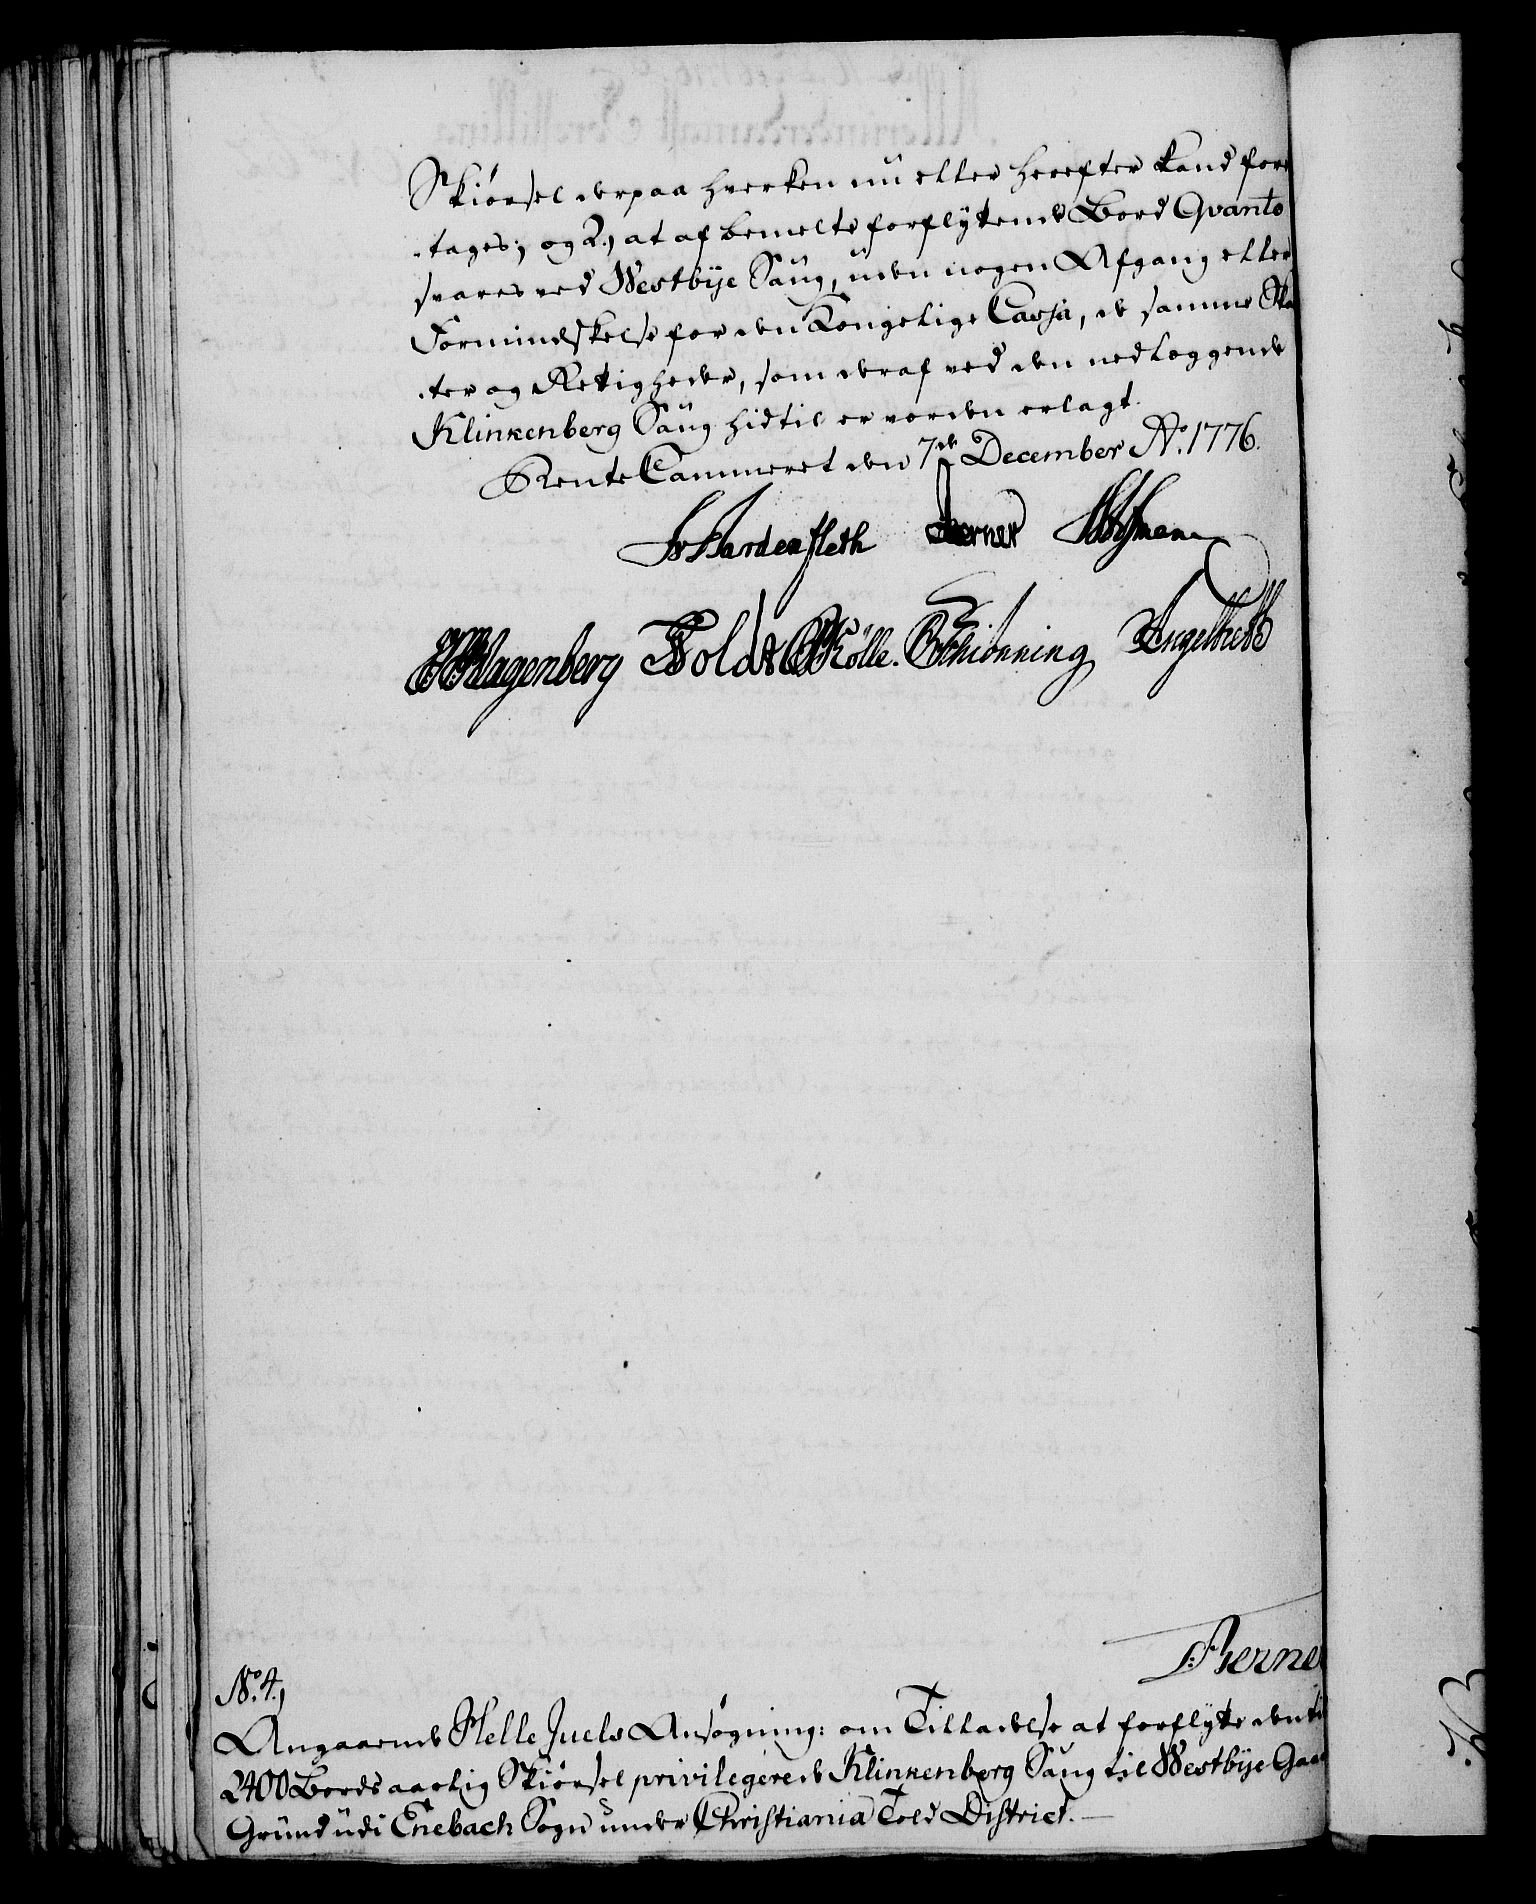 Skiørsel derpaa hverken nu eller herefter kand fore
tages; og 2.) at af bemelte forflytende Bord Qvanto
svares ved Westbÿe Saug, uden nogen Afgang eller
Formindskelse for den Kongelige Cassa, de samme Ska
ter og Rettigheder, som deraf ved den nedlaggende
Klinkenberg Saug hidtil er vorden erlagt.
RenteCammeret den 7de December Ao. 1776.
Hardenfleth Berner
Klagenberg Toldt Kölle. Schiønning Engelstedt
Berne
No. 4.)
Angaaende Helle Juels Ansøgning: om Tilladelse at forflytte den til
2400 Bords aarlig Skiørsel privilegerede Klinkenberg Saug til Westbÿe Gaa
Grund udi Enebach Sogn under Christiania Told District.